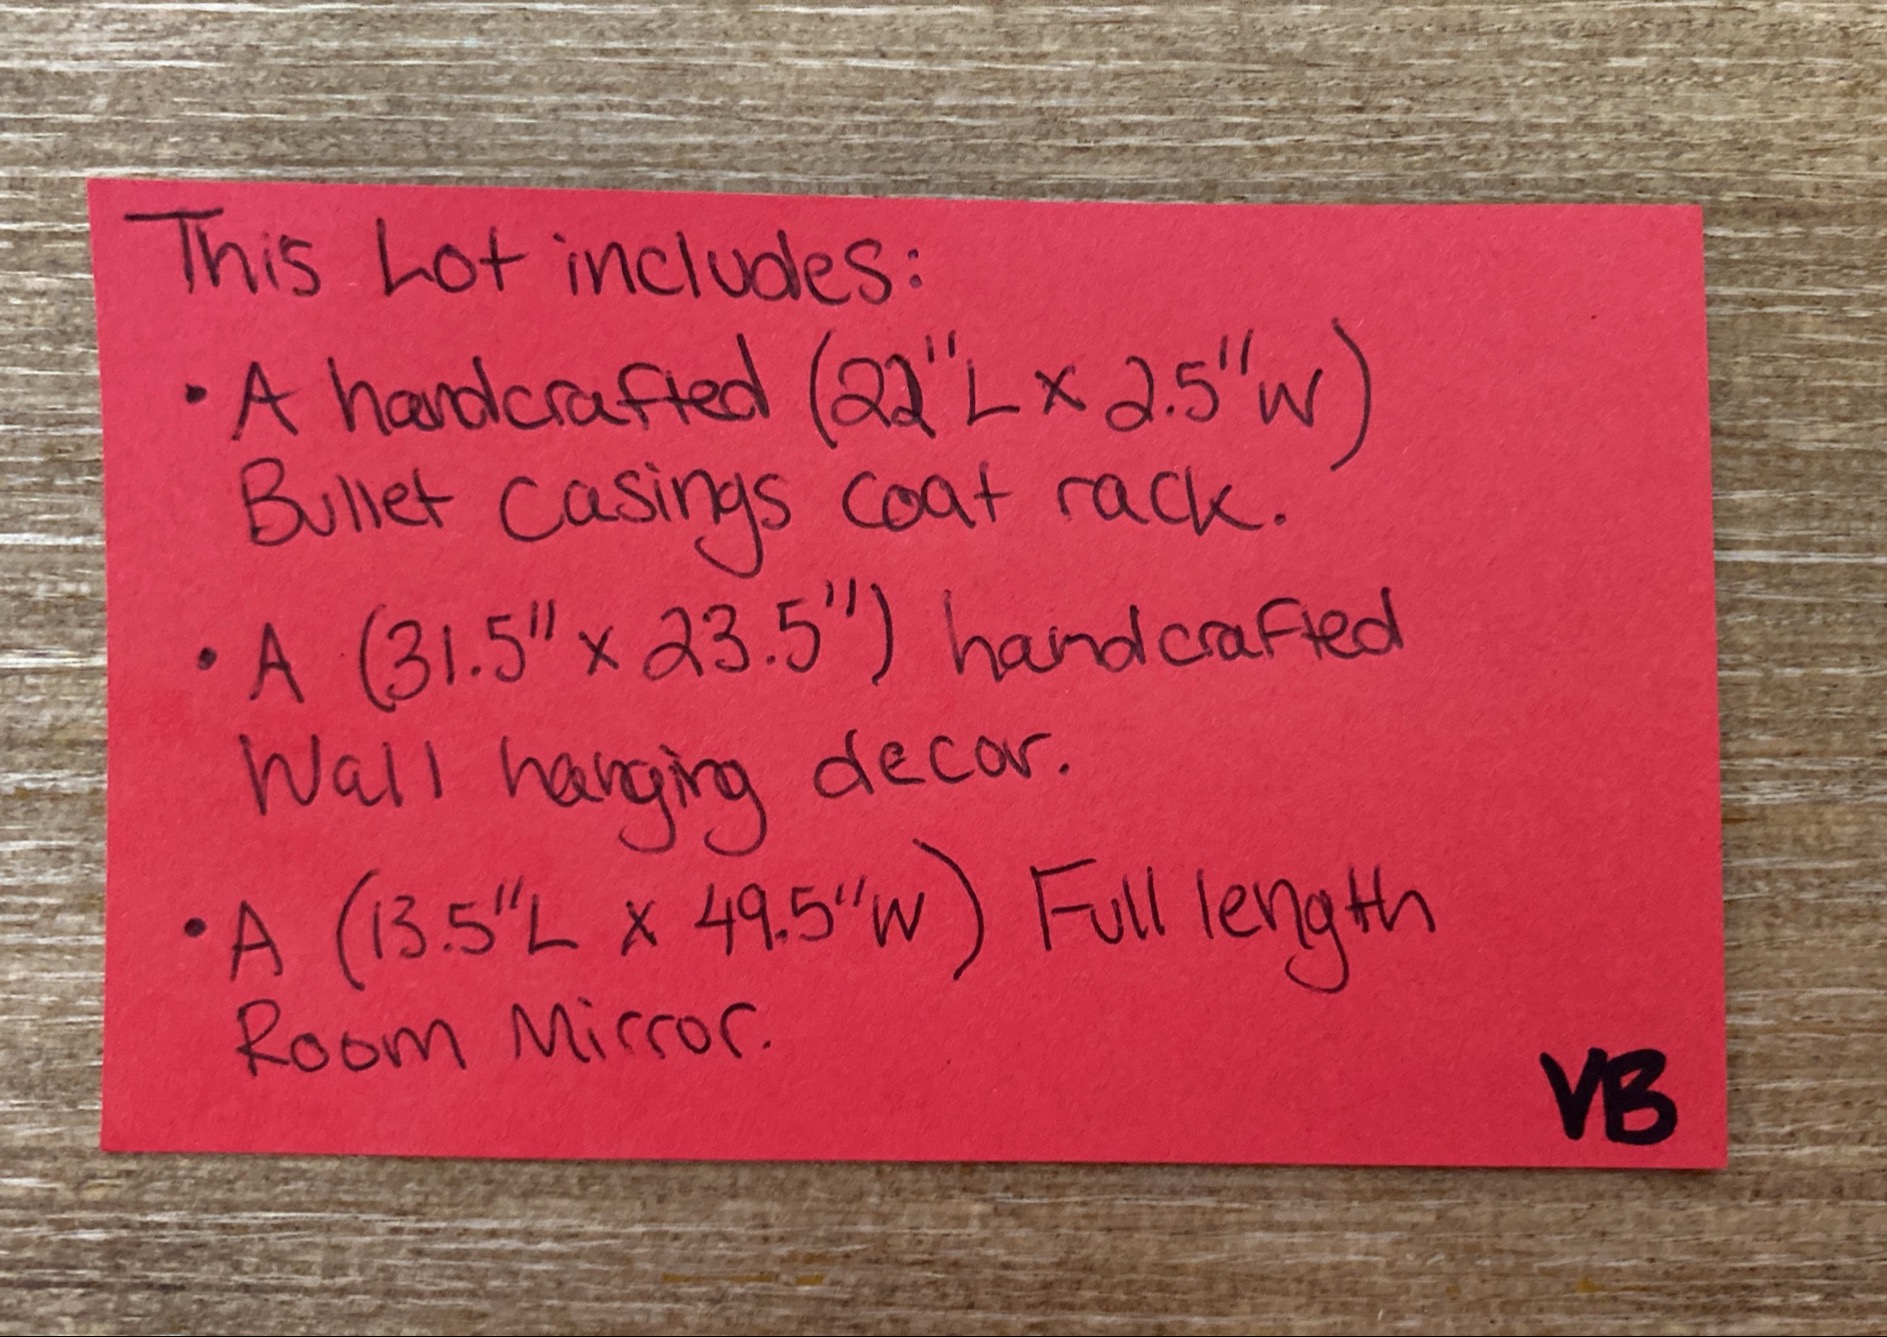 This Lot includes:
• A handcrafted (22"L x 2.5"W)
Bullet casings coat rack.
• A (31.5" x 23.5") handcrafted
Wall hanging decor.
• A (13.5"L x 49.5"W) Full length
Room Mirror.
VB